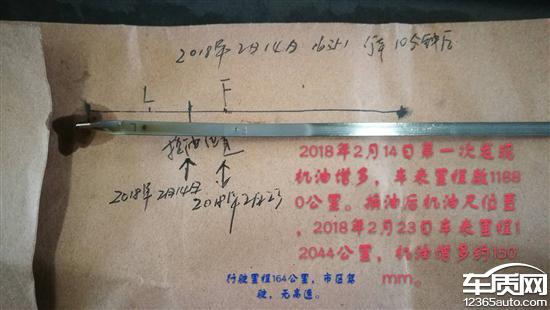 2018年2月14日 熄火 停车10分钟后
L F
抽油位置
2018年2月14日
2018年2月23
2018年2月14日第一次发现
机油增多，车来里程数1188
0公里。抽油后机油尺位置
，2018年2月23日车来里程1
2044公里，机油增多约150
mm。
行驶里程164公里，市区驾
驶，无高速。
车质网
12365auto.com